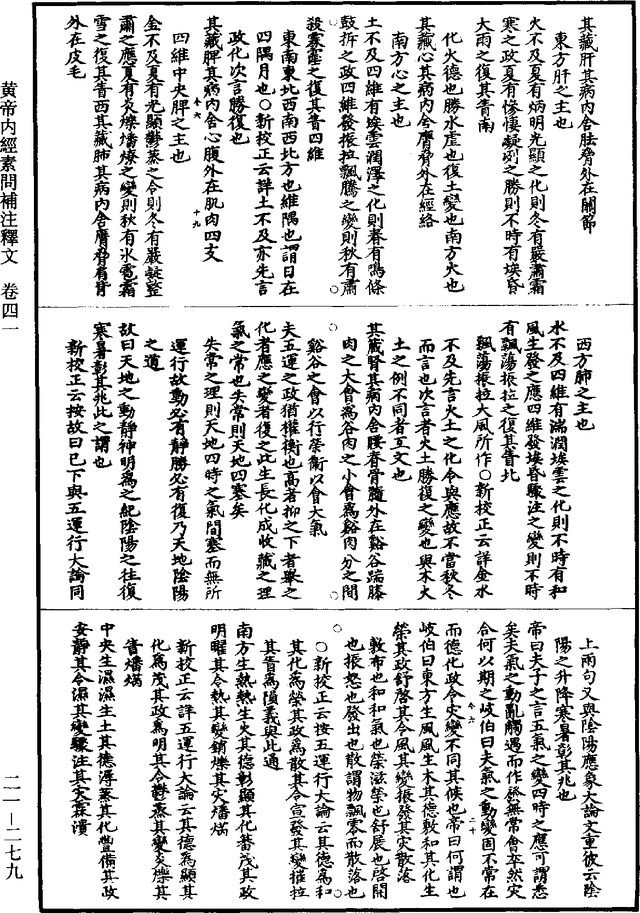 黄帝内經素問補注釋文 卷四一
二一—二七九
其藏肝其病内舍胠脅外在關節
東方肝之主也
火不及夏有炳明光顯之化則冬有嚴肅霜
寒之政夏有慘悽凝冽之勝則不時有埃昏
大雨之復其眚南
化火德也勝水虐也復土變也南方火也
其藏心其病内舍膺脅外在經絡
南方心之主也
土不及四維有埃雲潤澤之化則春有鳴條
鼓拆之政四維發振拉飄騰之變則秋有肅
殺霖霪之復其眚四維
東南東北西南西北方也維隅也謂日在
四隅月也○新校正云詳土不及亦先言
政化次言勝復也
其藏脾其病内舍心腹外在肌肉四支
四維中央脾之主也
金不及夏有光顯鬱蒸之令則冬有嚴凝整
肅之應夏有炎爍燔燎之變則秋有氷雹霜
雪之復其眚西其藏肺其病内舍膺脅肩背
外在皮毛
西方肺之主也
水不及四維有湍潤埃雲之化則不時有和
風生發之應四維發埃昏驟注之變則不時
有飄蕩振拉之復其眚北
飄蕩振拉大風所作○新校正云詳金水
不及先言火土之化令與應故不當秋冬
而言也次言者火土勝復之變也與木火
土之例不同者互文也
其藏腎其病内舍腰脊骨髓外在谿谷踹膝
肉之大會爲谷肉之小會爲谿肉分之間
谿谷之會以行榮衛以會大氣
夫五運之政猶權衡也高者抑之下者舉之
化者應之變者復之此生長化成收藏之理
氣之常也失常則天地四塞矣
失常之理則天地四時之氣閉塞而無所
運行故動必有靜勝必有復乃天地陰陽
之道
故曰天地之動靜神明爲之紀陰陽之往復
寒暑彰其兆此之謂也
新校正云按故曰已下與五運行大論同
上兩句又與陰陽應象大論文重彼云陰
陽之升降寒暑彰其兆也
帝曰夫子之言五氣之變四時之應可謂悉
矣夫氣之動亂觸遇而作發無常會卒然灾
合何以期之岐伯曰夫氣之動變固不常在
而德化政令灾變不同其候也帝曰何謂也
岐伯曰東方生風風生木其德敷和其化生
榮其政舒啓其令風其變振發其灾散落
敷布也和和氣也榮滋榮也舒展也啓開
也振怒也發出也散謂物飄零而散落也
○新校正云按五運行大論云其德爲和
其化爲榮其政爲散其令宣發其變摧拉
其眚爲隕義與此通
南方生熱熱生火其德彰顯其化蕃茂其政
明曜其令熱其變銷爍其灾燔焫
新校正云詳五運行大論云其德爲顯其
化爲茂其政爲明其令鬱蒸其變炎爍其
眚燔焫
中央生濕濕生土其德溽蒸其化豐備其政
安靜其令濕其變驟注其灾霖潰